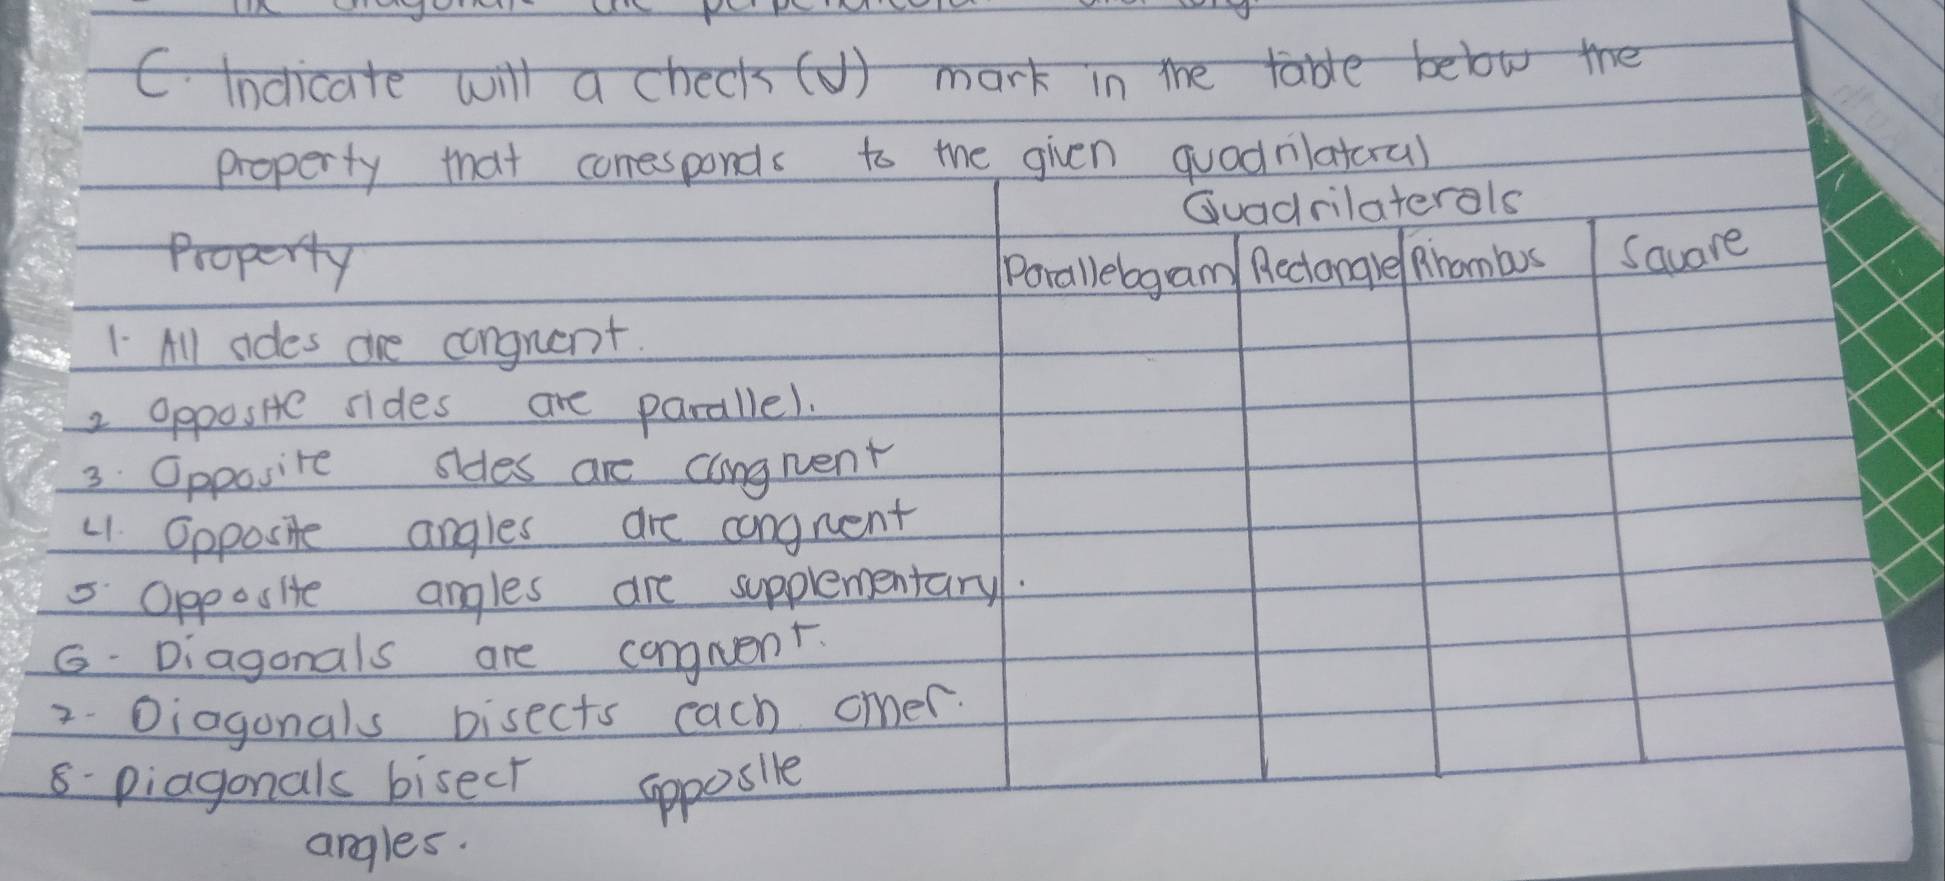 C. Indicate will a check (√) mark in the table below the
property that corresponds to the given quadrilateral
Quadrilaterals
Property
Parallelogram Rectangle Rhombus Square
1. All sides are congruent.
2 opposite sides are parallel.
3. Opposite sides are congruent
4. Opposite angles are congruent
5. Opposite angles are supplementary.
6. Diagonals are congruent.
7. Diagonals bisects each other.
8. Diagonals bisect opposite
angles.